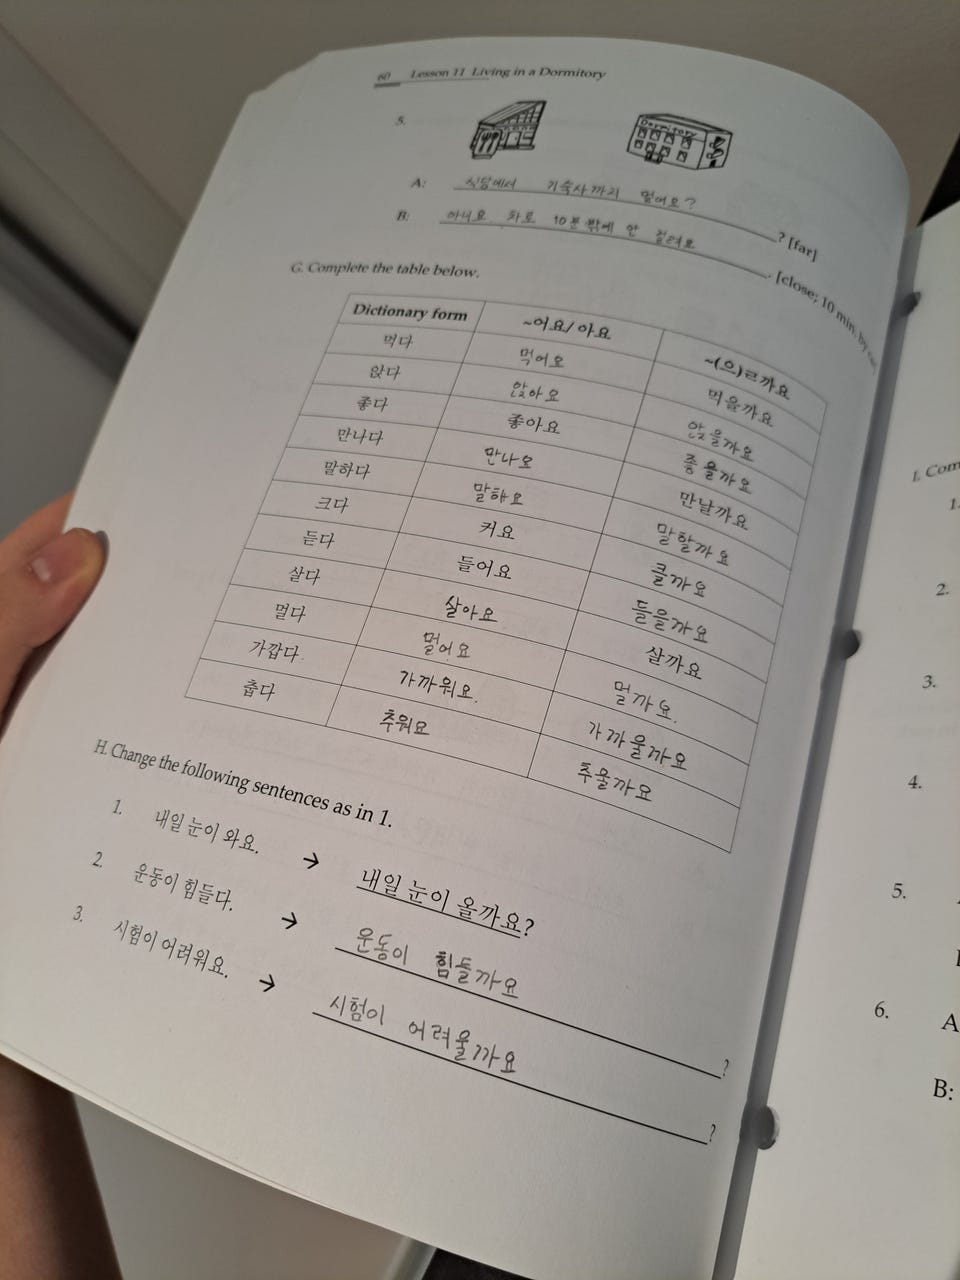 60 Lesson 11 Living in a Dormitory
5.
Dormitory
A: 식당에서 기숙사까지 멀어요? ? [far]
B: 아니요 차로 10분밖에 안 걸려요 . [close; 10 min. by
G. Complete the table below.
Dictionary form ~어요/아요 ~(으)ㄹ까요
먹다 먹어요 먹을까요
앉다 앉아요 앉을까요
좋다 좋아요 좋을까요
만나다 만나요 만날까요
말하다 말하요 말할까요
크다 커요 클까요
듣다 들어요 들을까요
살다 살아요 살까요
멀다 멀어요 멀까요.
가깝다 가까워요. 가까울까요
춥다 추워요 추울까요
H. Change the following sentences as in 1.
1. 내일 눈이 와요. → 내일 눈이 올까요?
2. 운동이 힘들다. → 운동이 힘들까요 ?
3. 시험이 어려워요. → 시험이 어려울까요 ?
I. Com
1.
2.
3.
4.
5.
6. A
B: